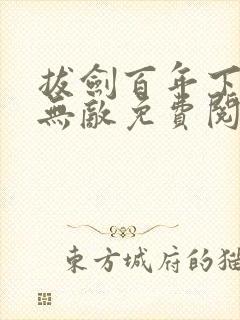 拔劍百年下
無敵免費閱
東方城府的猫